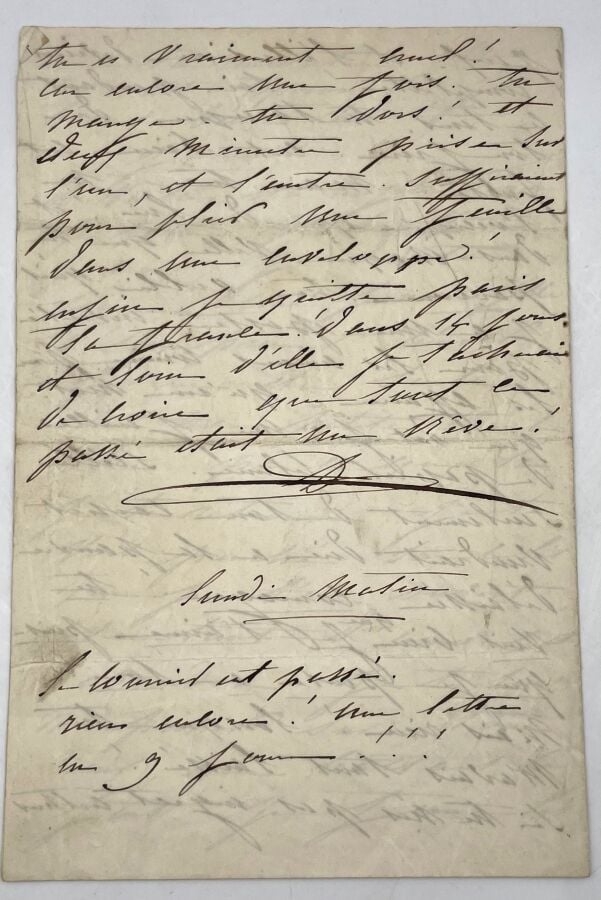 tu es vraiment cruel!
car encore une fois. tu
mange. tu dors! et
deux minutes prises sur
l'un, et l'autre. suffiraient
pour plier une feuille
dans une enveloppe!
enfin je quitte paris
la france! dans 14 jours
et loin d'elle je tacherai
de croire que tout ce
passé était un rêve!
D
Lundi Matin
le courrier est passé.
rien encore! une lettre
en 9 jours!!!